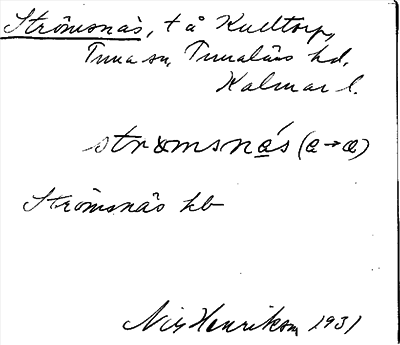 Strömsnäs, t å Kulltorp,
Tuna sn, Tunaläns hd,
Kalmar l.
strömsnä́s (a→æ)
Strömsnäs hb
Nils Henrikson 1931